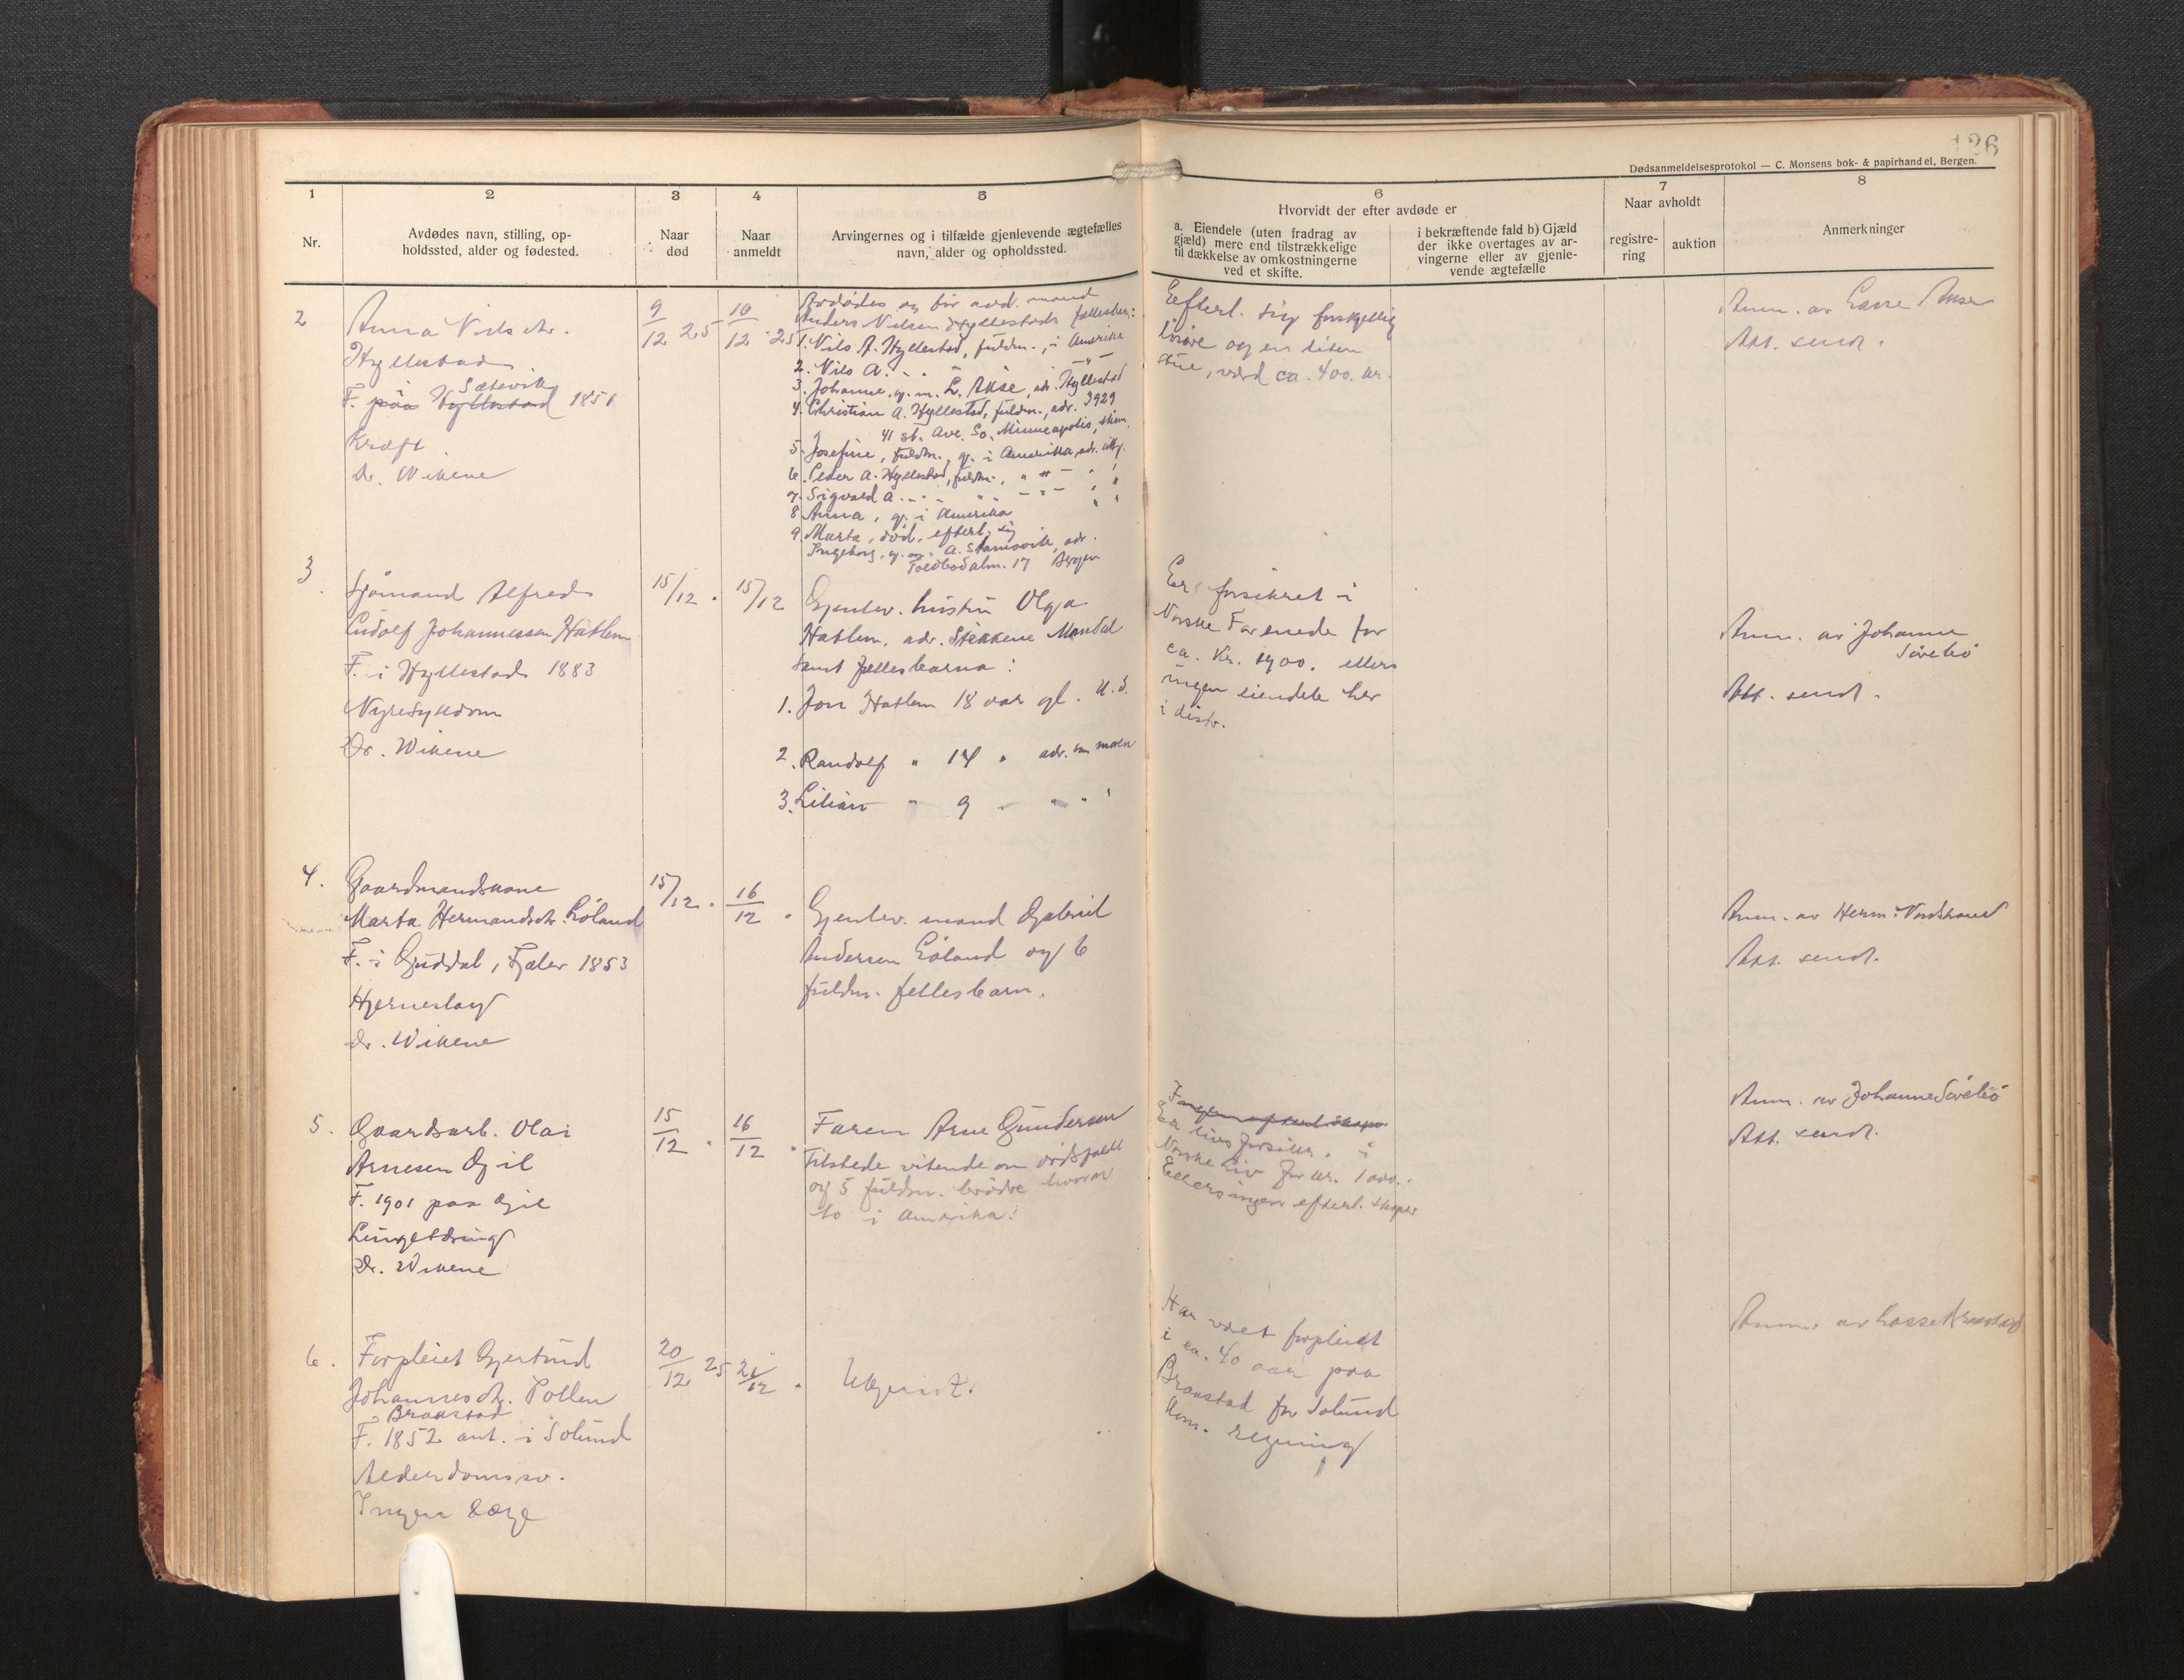 126
Dødsanmeldelsesprotokol — C. Monsens bok- & papirhandel, Bergen.
1
2
3
4
5
6
7
8
Nr.
Avdødes navn, stilling, op-
holdssted, alder og fødested.
Naar
død
Naar
anmeldt
Arvingernes og i tilfælde gjenlevende ægtefælles
navn, alder og opholdssted.
Hvorvidt der efter avdøde er
a. Eiendele (uten fradrag av
gjæld) mere end tilstrækkelige
til dækkelse av omkostningerne
ved et skifte.
i bekræftende fald b) Gjæld
der ikke overtages av ar-
vingerne eller av gjenle-
vende ægtefælle
Naar avholdt
registre-
ring
auktion
Anmerkninger
2
Anna Nilsdtr.
Hyllestad
Sætevik
F. i paa Hyllestad 1851
Kræft
Dr. Wikene
9/12 25
10/12 25
Avdødes og før avd. mand
Anders Nilsen Hyllestads fellesbar:
1. Nils A. Hyllestad, fuldm., i Amerika
2. Nils A. " " — " —
3. Johanne, g. m. L. Akse, adr. Hyllestad
4. Christian A. Hyllestad, fuldm., adr. 3929
41 st. Ave. So. Minneapolis,
5. Josefine, fuldm., g. i Amerika, adr.
6. Peder A. Hyllestad, fuldm., " " — " "
7. Sigvald A. " " " " — " — " "
8 Anna, g. i Amerika " "
9. Marta, død, efterl. sig
Ingeborg, g. m. A. adr.
Toldbodalm. 17 Bergen
Efterl. sig forskjellig
løsøre og en liten
stue, værd ca. 400. kr.
Anm. av Lasse Akse
Att. sendt.
3
Sjømand Alfred
Ludolf Johannessen Hatlem
F. i Hyllestad 1883
Nyresykdom
Dr. Wikene
15/12 "
15/12
Gjenlev. hustru Olga
Hatlem, adr. Stekkene Mandal
samt fellesbarna:
1. Jon Hatlem 18 aar gl. U.S.
2. Randolf " 14 " adr. som moren
3. Lilian " 9 " " " "
Er forsikret i
Norske Forenede for
ca. Kr. 1900. ellers
ingen eiendele her
i distr.
Anm. av Johanne
Sørebø
Att. sendt.
4.
Gaardmandskone
Marta Hermandsdtr. Løland
F. i Guddal, Fjaler 1853
Hjerneslag
Dr. Wikene
15/12 "
16/12 "
Gjenlev. mand Gabriel
Andersen Løland og 6
fuldm. fellesbarn.
Anm. av Herm. Nordstrand
Att. sendt.
5.
Gaardsarb. Olai
Arnesen Gjil
F. 1901 paa Gjil
Lungetæring
Dr. Wikene
15/12 "
16/12 "
Faren Arne Gundersen
Tilstede vitende om dødsfaldet
og 5 fuldm. brødre hvorav
to i Amerika.
Ingen efterladenskaper
Er livsforsikr. i
Norske Liv for kr. 1000.
Ellers ingen efterl. skaper
Anm. av Johanne Sørebø
Att. sendt.
6.
Forpleiet Gjertrud
Johannesdtr. Tollen
Braastad
F. 1852 ant. i Solund
Alderdomssv.
Ingen Læge
20/12 25
21/12 "
Ukjendt.
Har været forpleiet
i ca. 40 aar paa
Braastad for Solund
kom. regning
Anm. av Lasse Braastad